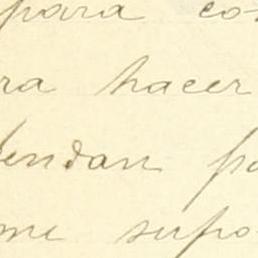 para con
ra hacer
endan pa
me supo